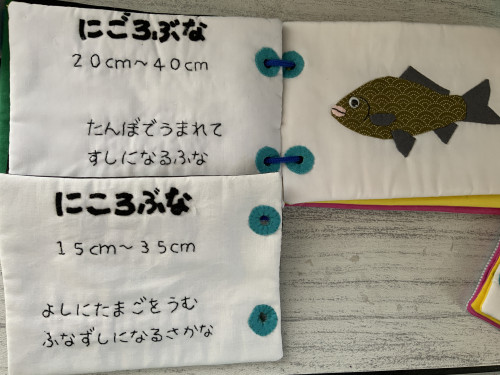 にごろぶな
20cm〜40cm
たんぼでうまれて
すしになるふな
にころぶな
15cm〜35cm
よしにたまごをうむ
ふなずしになるさかな